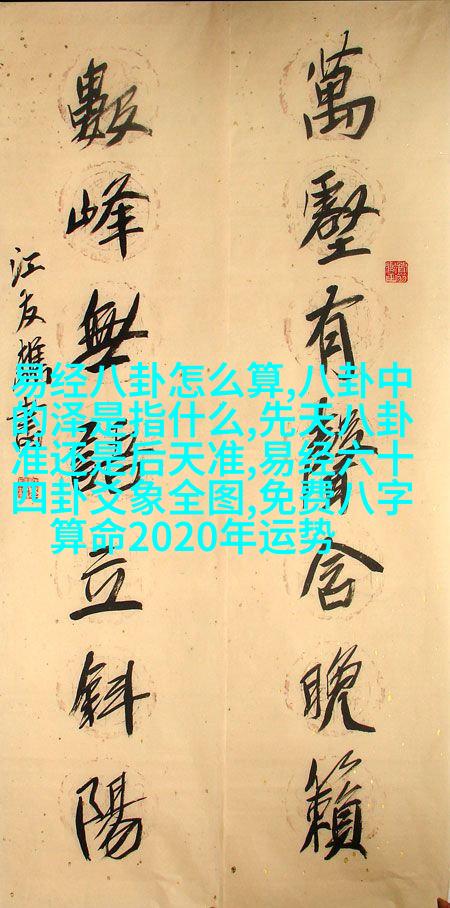 萬壑有聲含晚籟
數峰無語立斜陽
江友樵書
易经八卦怎么算,八卦中
的泽是指什么,先天八卦
准还是后天准,易经六十
四卦爻象全图,免费八字
算命2020年运势